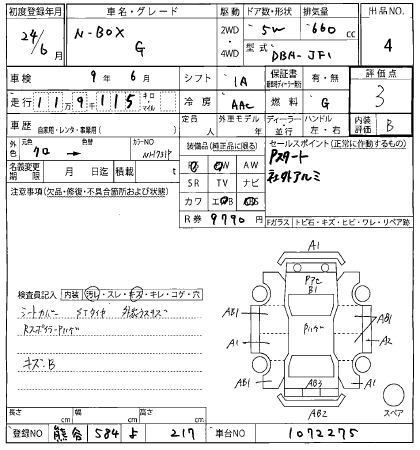 初度登録年月 車名・グレード 駆動 ドア数・形状 排気量 出品NO
24/6月 N-BOX G 2WD ・ 4WD 5W 660cc 4
型式 DBA-JF1
車検 9年 6月 シフト IA 保証書 有・無 評価点
走行 119千115 キロ・マイル 冷房 AAC 燃料 G 3
車歴 自家用・レンタ・事業用( ) 定員 人 外車モデル 年 ディーラー・並行 ハンドル 左・右 内装評価 B
外色 元色 クロ 色替 カラーNO NH731P
名義変更期限 月 日迄 積載 t
装備品(純正品に限る)
SR TV ナビ
カワ
R券 9790円
セールスポイント(正常に作動するもの)
Pスタート
社外アルミ
注意事項(欠品・修復・不具合箇所および状態)
Fガラス トビ石・キズ・ヒビ・ワレ・リペア跡
検査員記入 内装 汚レ・スレ・キズ・キレ・コゲ・穴
シートカバー STタイヤ
キズ:B
A1
Pアセ
B1
AB1
A1
AB1
AB1
A2
A1
AB3
AB2
スペア
長さ cm 幅 cm 高さ cm
登録NO 熊谷 584 よ 217 車台NO 1072275